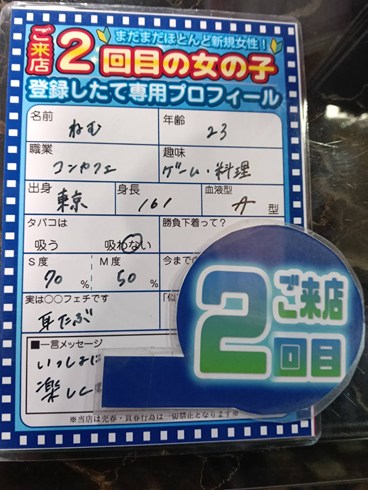 ご来店
まだまだほとんど新規女性！
2回目の女の子
登録したて専用プロフィール
名前 ねむ
年齢 23
職業 コンカフェ
趣味 ゲーム・料理
出身 東京
身長 161
血液型 A 型
タバコは
吸う 吸わない
勝負下着って？
S度 70 %
M度 50 %
今まで
実は○○フェチです
耳たぶ
「似
■一言メッセージ
いっしょに
楽しく
※当店は売春・買春行為は一切禁止となります※
ご来店
2回目